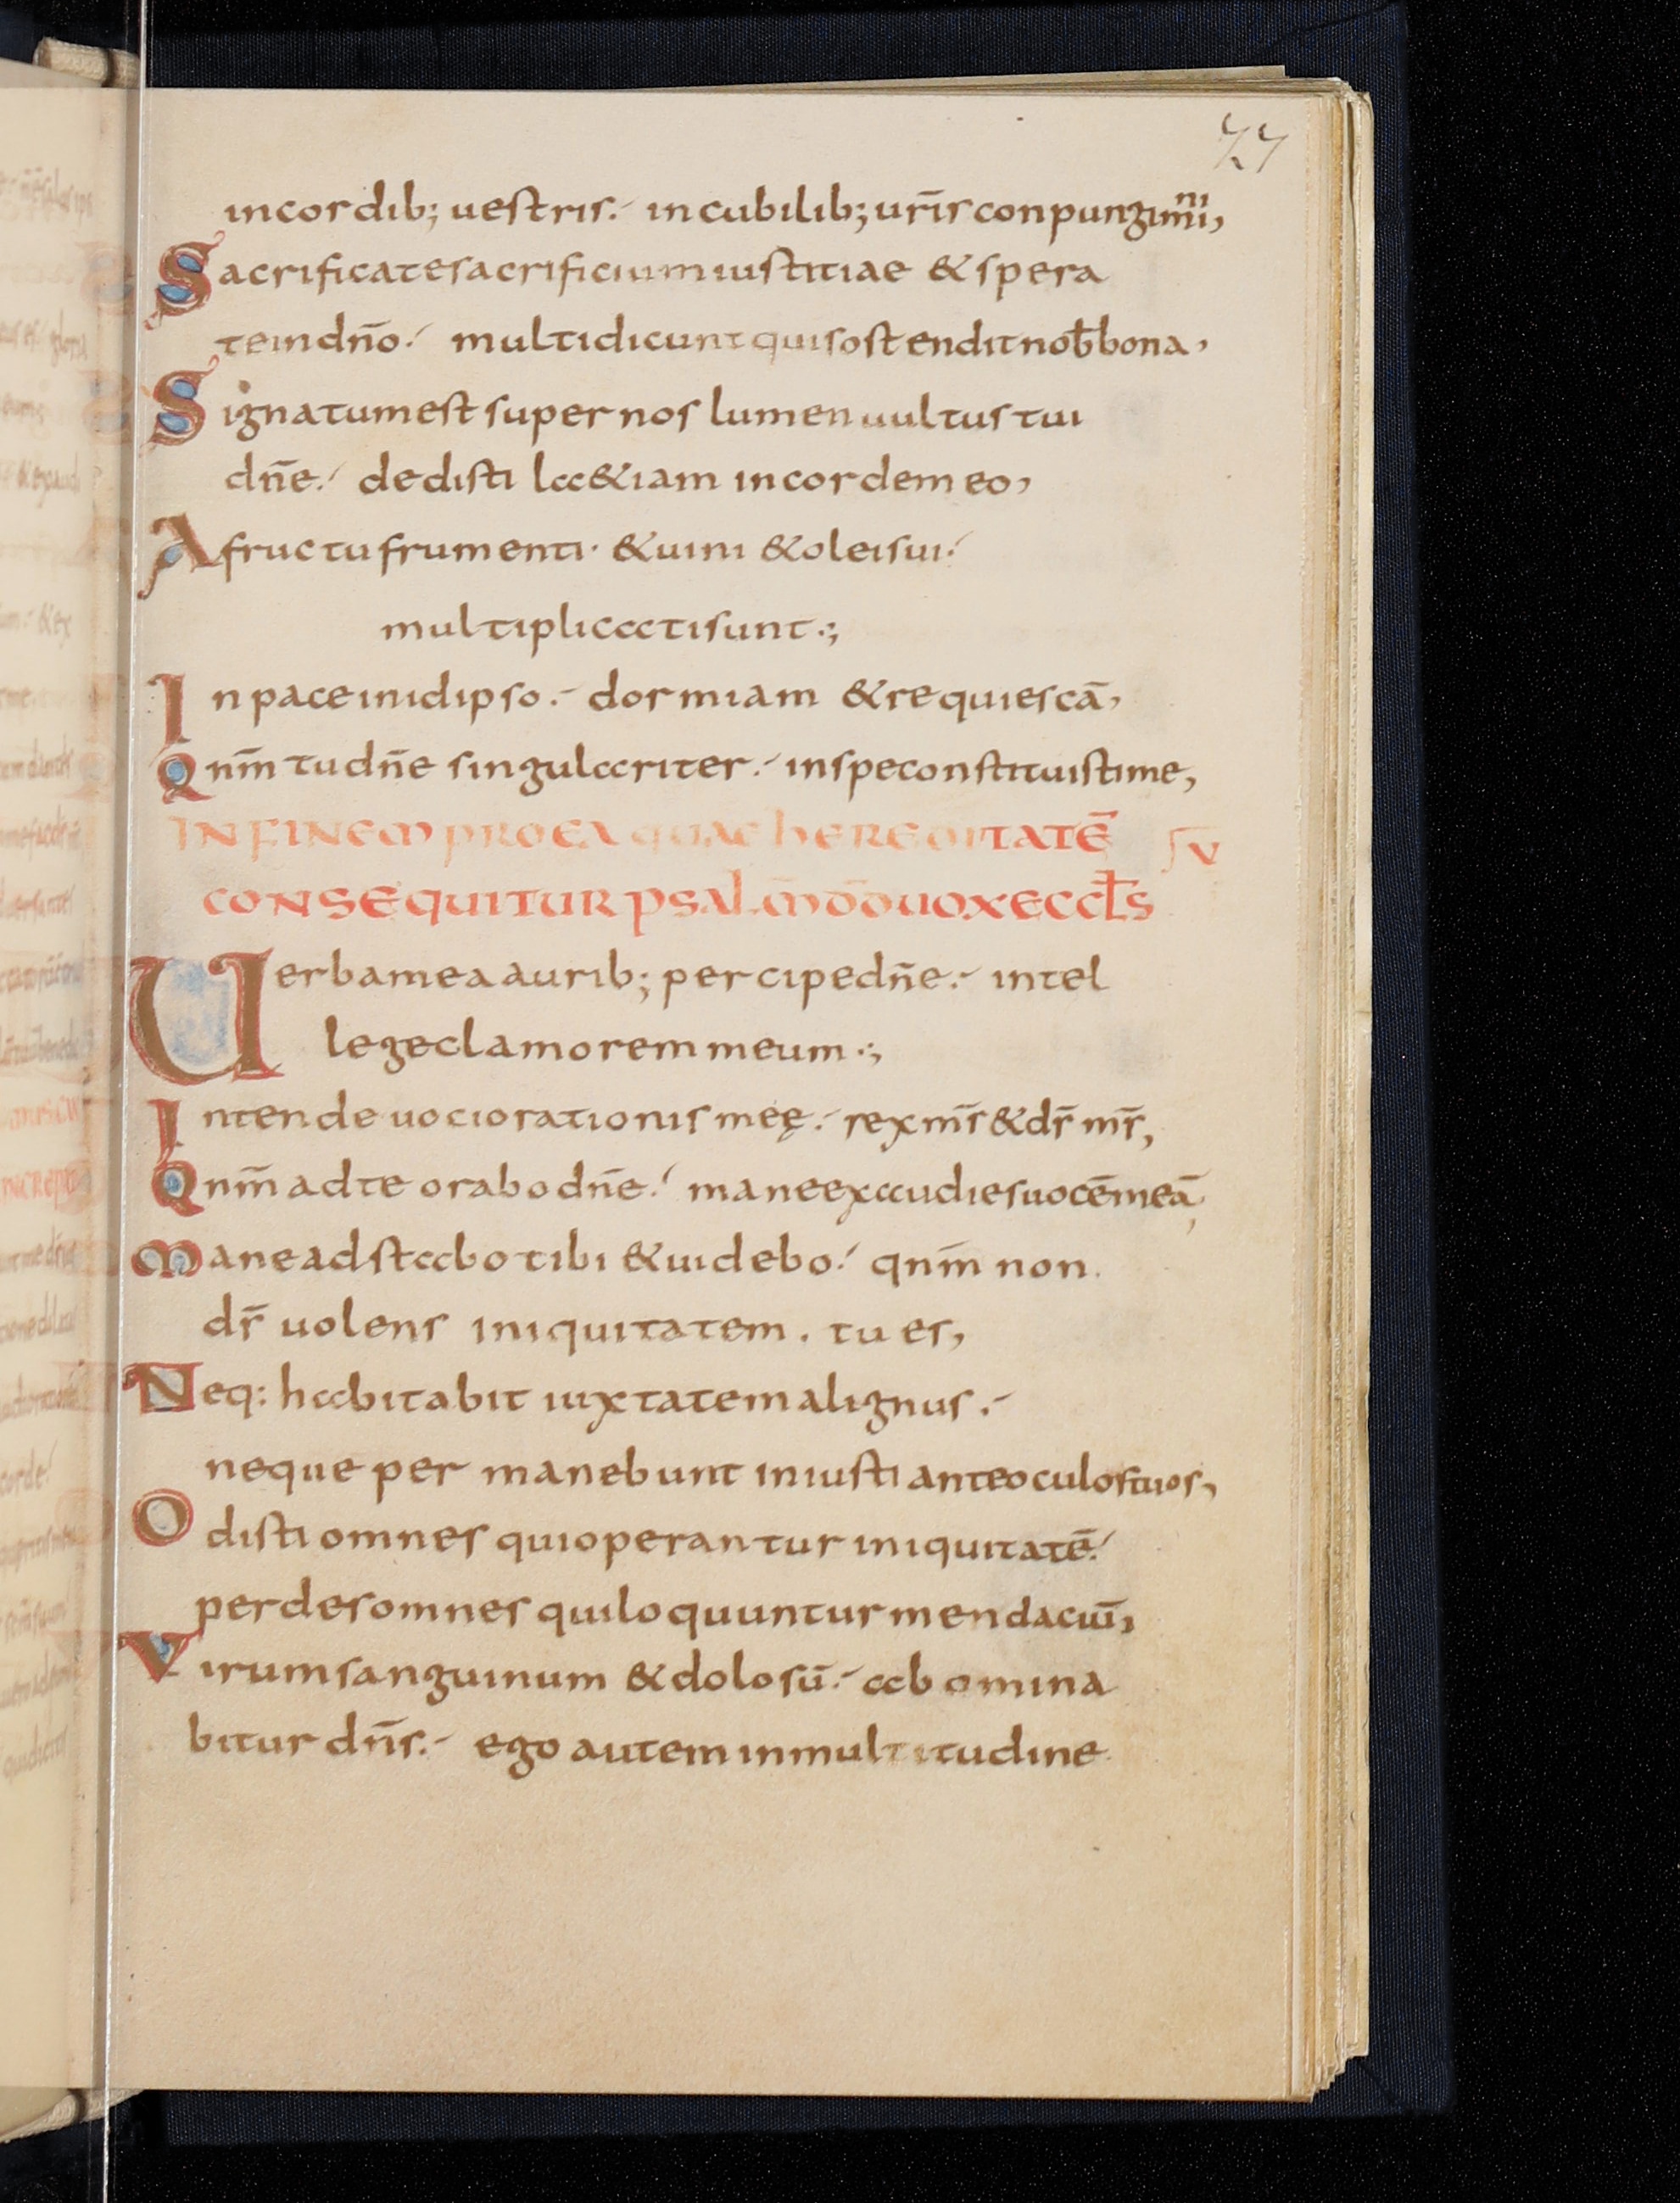 77
incordib; uestris. incubilib; ur̄is conpungimi,
ni
Sacrificatesacrificiumiustitiae & spera
teindn̄o. multidicunt quisostenditnob̄bona,
Signatumest super nos lumen uultus tui
dn̄e. dedisti lae&iam incordemeo,
A fructufrumenti· &uini &oleisui.
multiplicatisunt:,
In paceinidipso. dormiam &requiescā,
Qnm̄ tudn̄e singulariter. inspeconstituistime,
INFINEM PROEA QUAE HEREDITATĒ
V
CONSEQUITUR PSALM̄ D̄D UOX ECCL̄S
Uerbameaaurib; percipedn̄e. intel
legeclamoremmeum:,
Intende uociorationis meę. rexm̄s&dr̄ mr̄,
Qnm̄ adte orabodn̄e. maneexaudiesuocēmeā,
Maneadstabo tibi &uidebo. qnm̄ non
dr̄ uolens iniquitatem. tu es,
Neq: habitabit iuxtatemalignus.
neque per manebunt iniusti anteoculostuos,
Odisti omnes quioperantur iniquitatē.
perdesomnes quiloquuntur mendaciū,
Virumsanguinum &dolosū. abomina
bitur dn̄s. ego autem inmultitudine